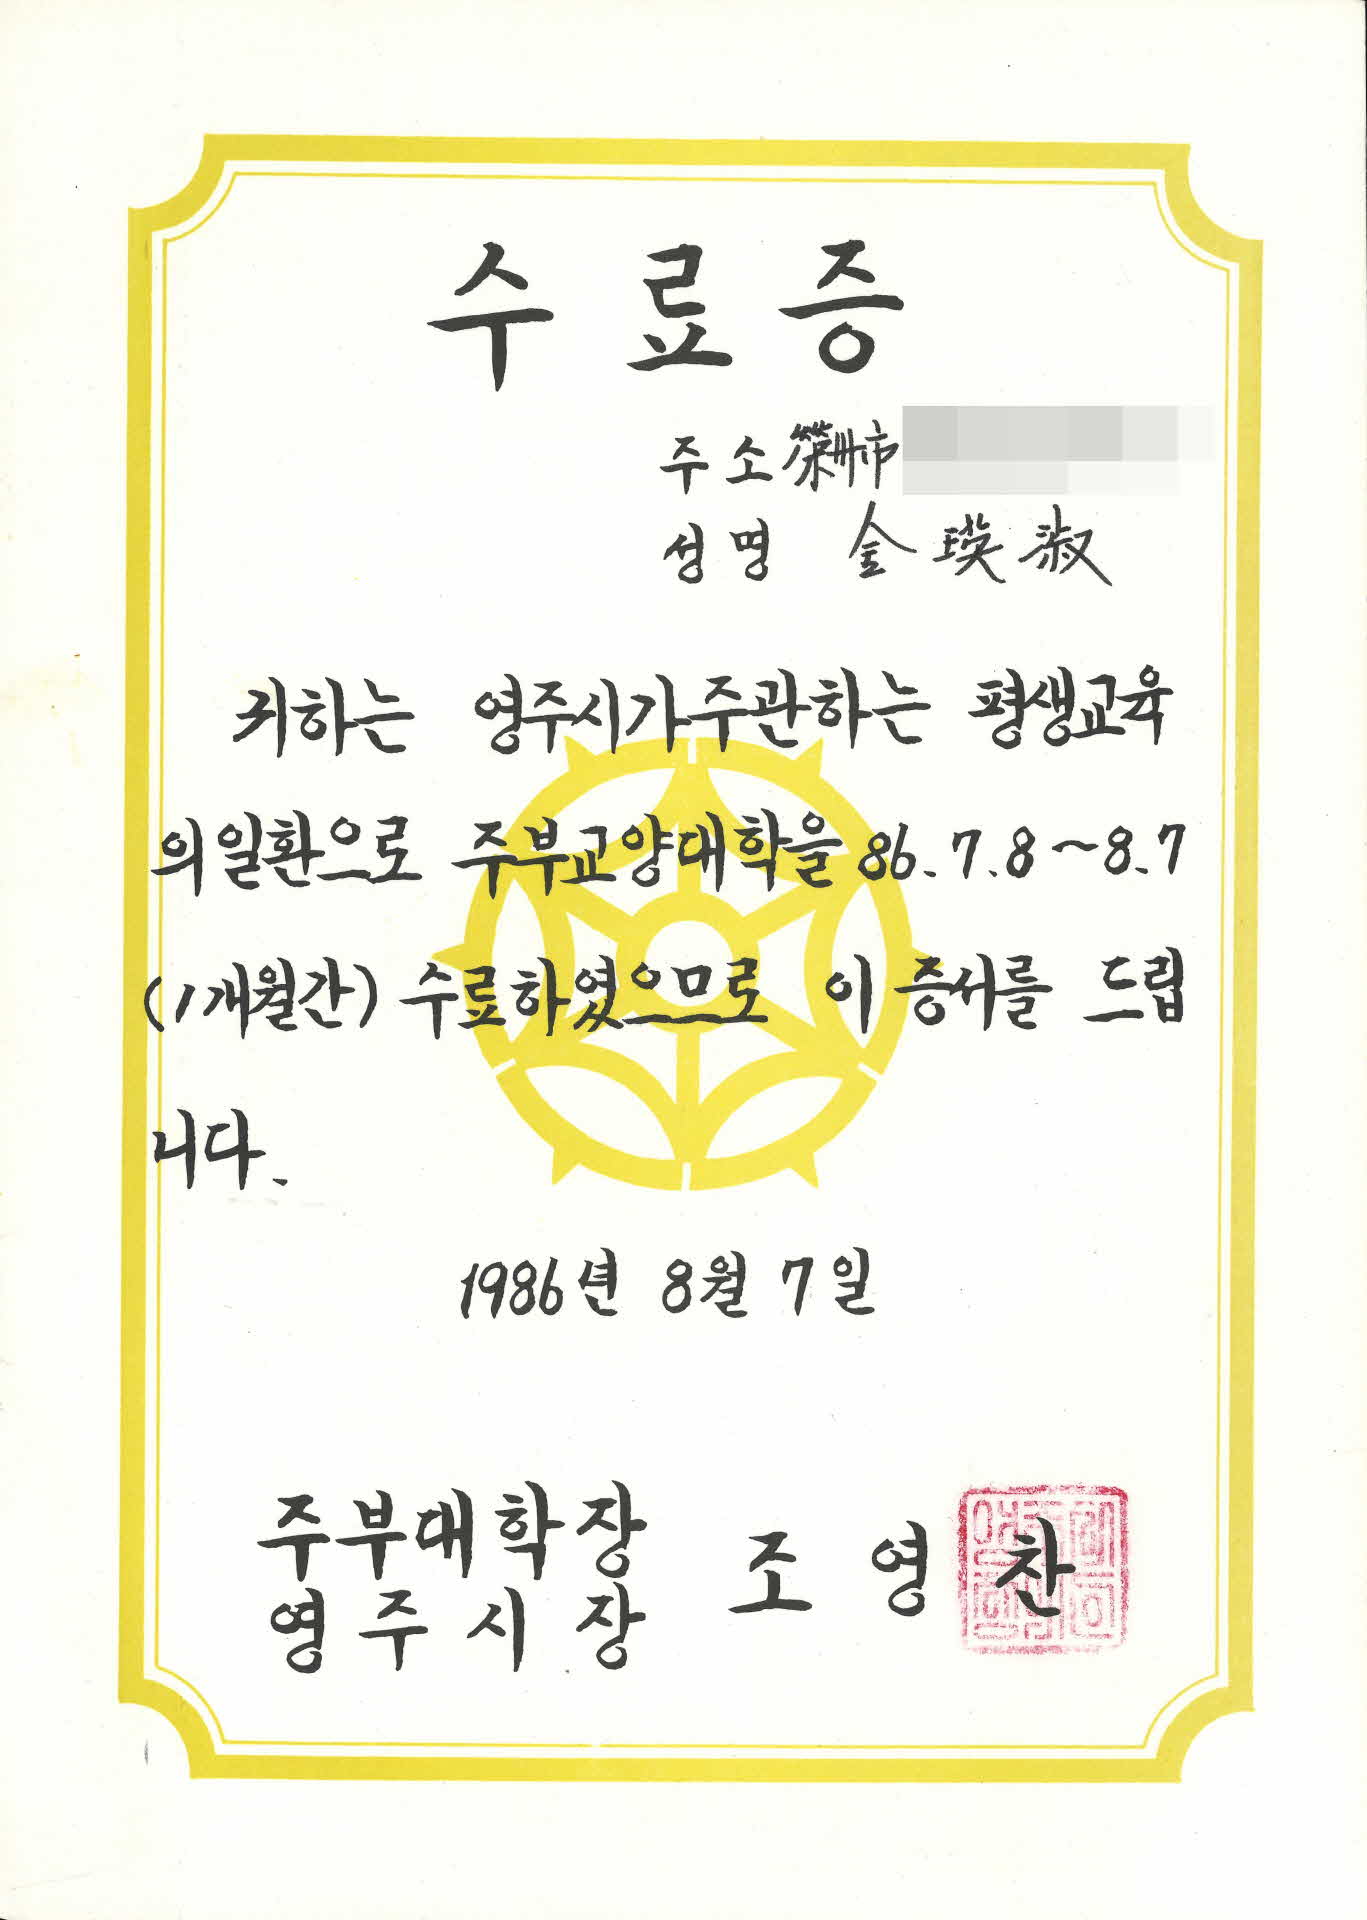 수료증
주소 榮州市
성명 金瑛淑
귀하는 영주시가주관하는 평생교육
의일환으로 주부교양대학을 86.7.8~8.7
(1개월간) 수료하였으므로 이 증서를 드립
니다.
1986년 8월 7일
주부대학장
영주시장 조영찬